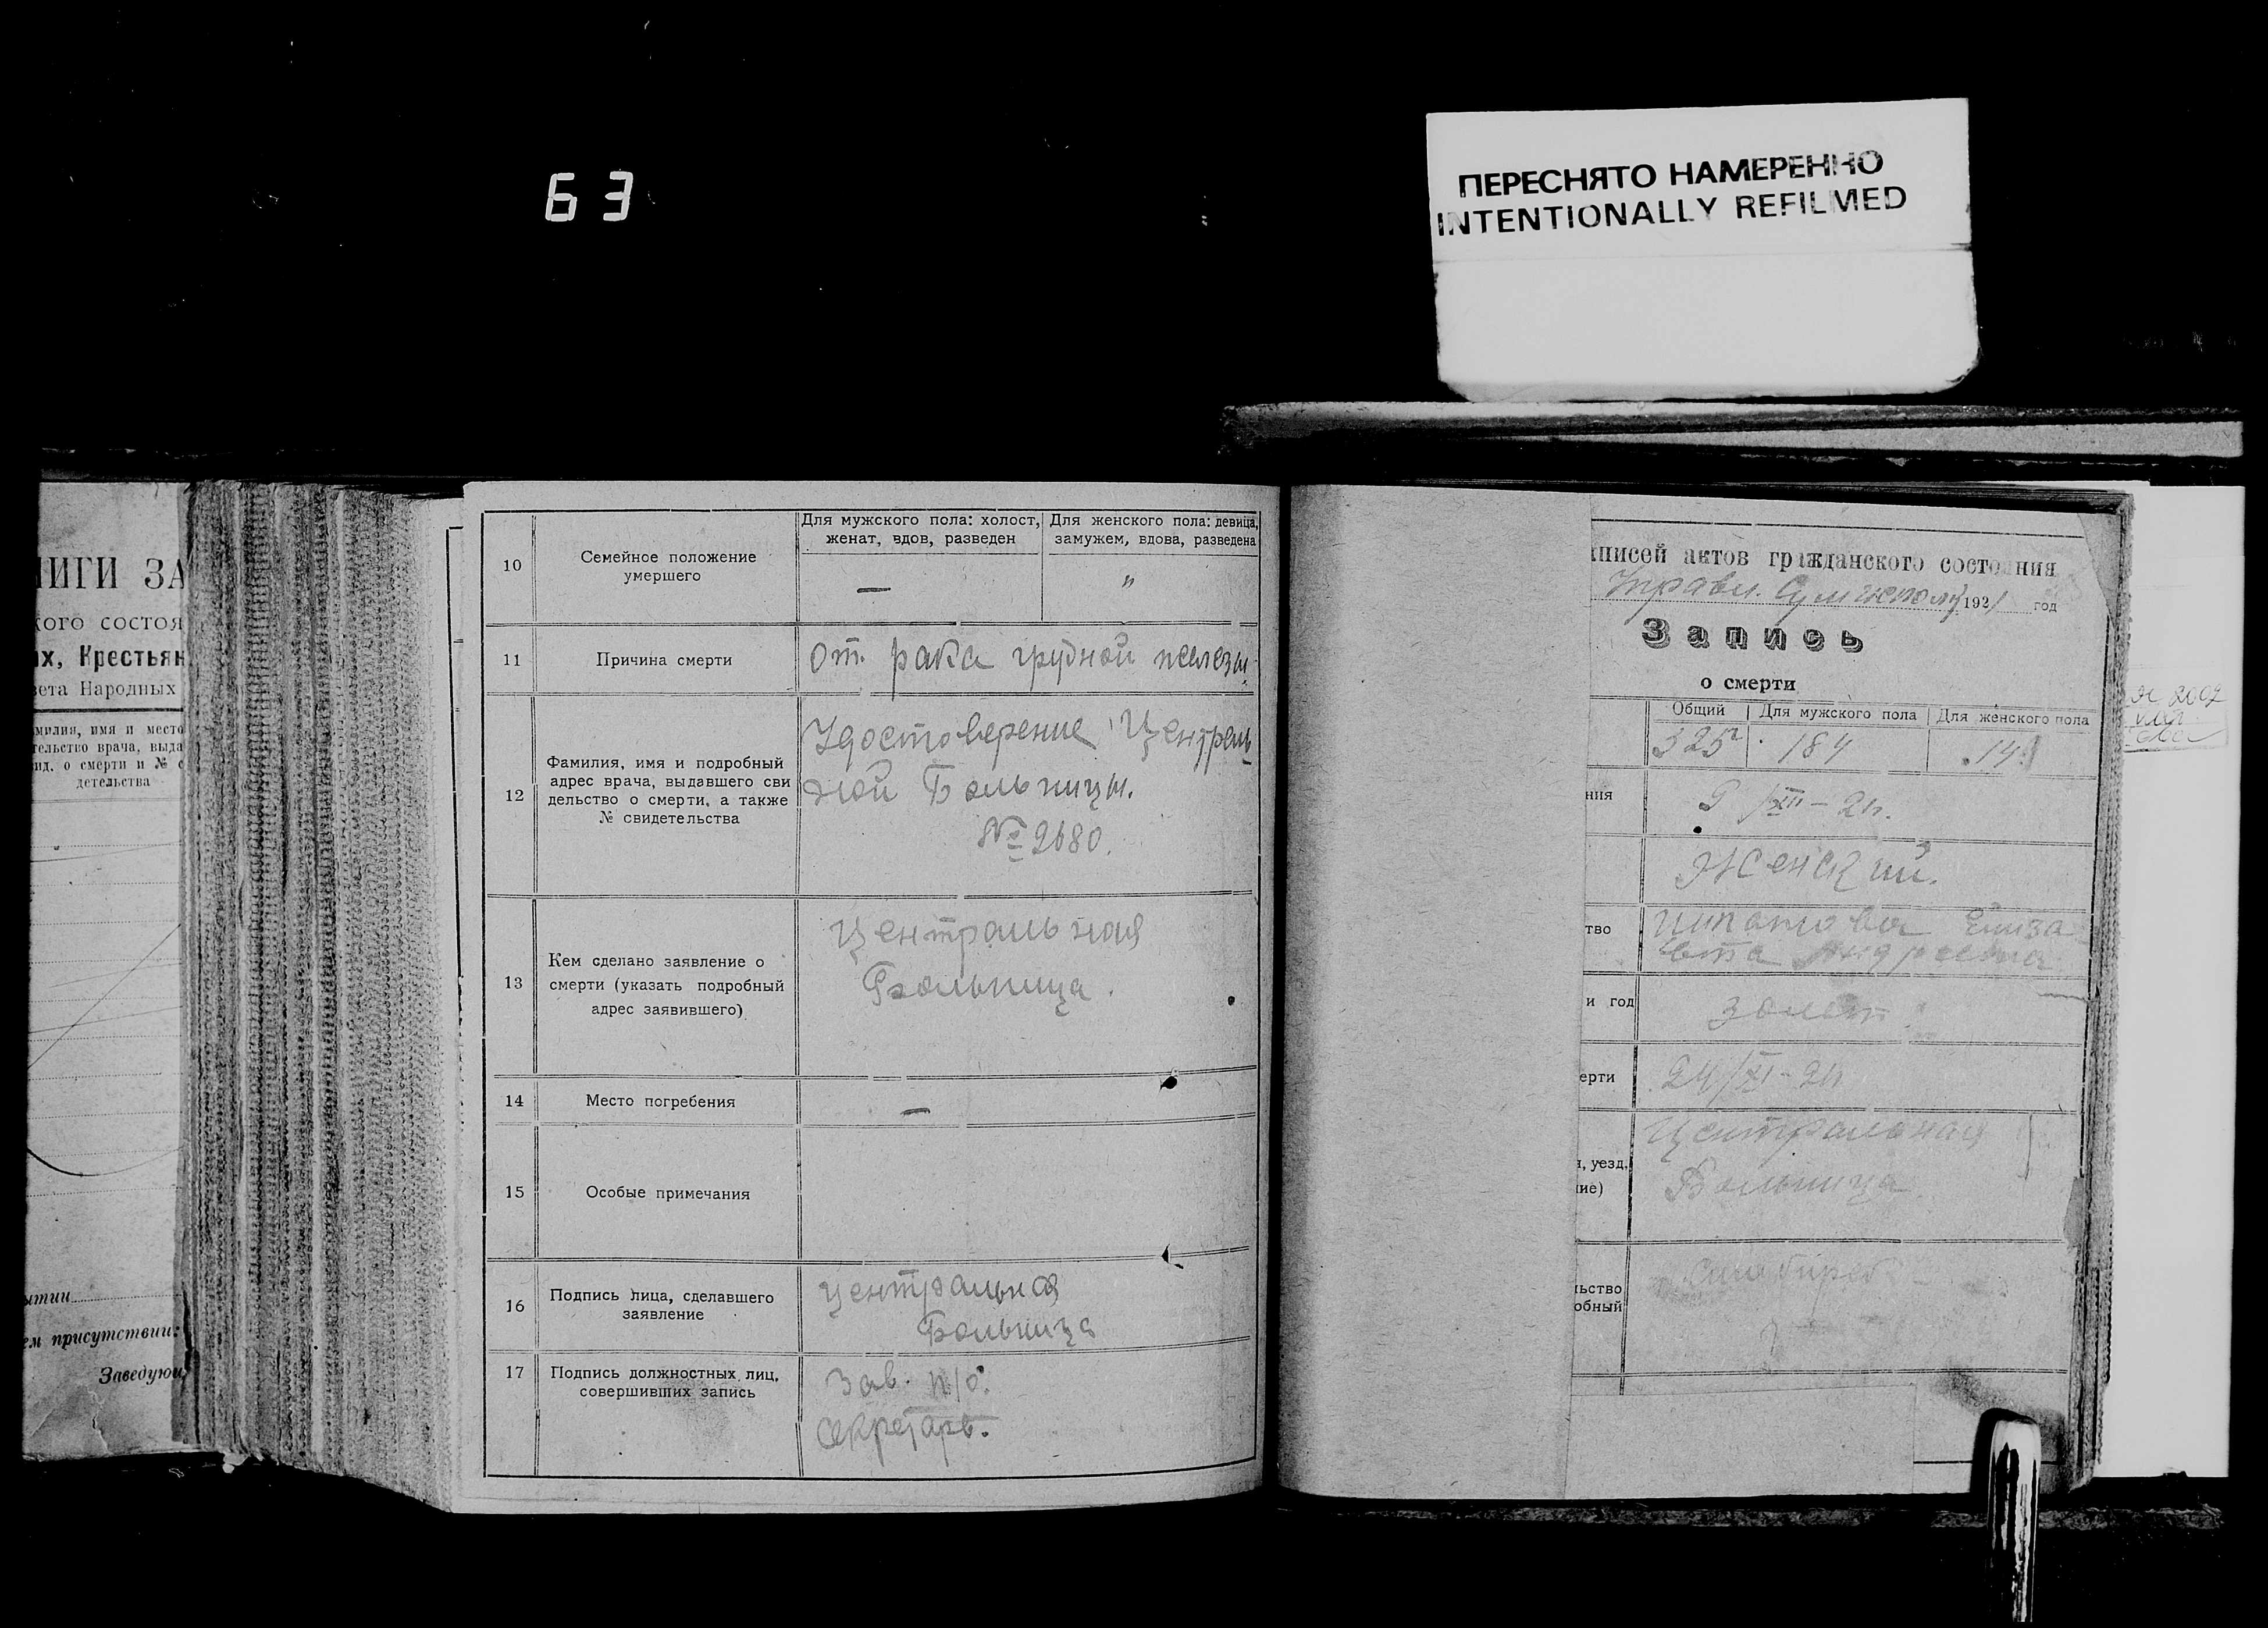 63
ПЕРЕСНЯТО НАМЕРЕННО
INTENTIONALLY REFILMED
ИГИ ЗА
кого состоя
их, Крестьян
ета Народных
милия, имя и место
тельство врача, выда
ид. о смерти и № с
детельства
ытии
ем присутствии:
Заведую
10
Семейное положение
умершего
Для мужского пола: холост,
женат, вдов, разведен
Для женского пола: девица,
замужем, вдова, разведена
—
"
11
Причина смерти
От рака грудной железы
12
Фамилия, имя и подробный
адрес врача, выдавшего сви
дельство о смерти, а также
№ свидетельства
Удостоверение Централь
ной Больницы.
№ 2680.
13
Кем сделано заявление о
смерти (указать подробный
адрес заявившего)
Центральная
Больница.
14
Место погребения
—
15
Особые примечания
16
Подпись лица, сделавшего
заявление
Центральная
Больница
17
Подпись должностных лиц,
совершивших запись
Зав. п/о.
Секретарь.
писей актов гражданского состояния
1921 год
Запись
о смерти
Общий
Для мужского пола
Для женского пола
325
184
141
ния
/XII – 21г.
Женский.
тво
Елиза
вета
и год
ерти
24/XI – 21г
, уезд,
ие)
Центральная
Больница
ьство
обный